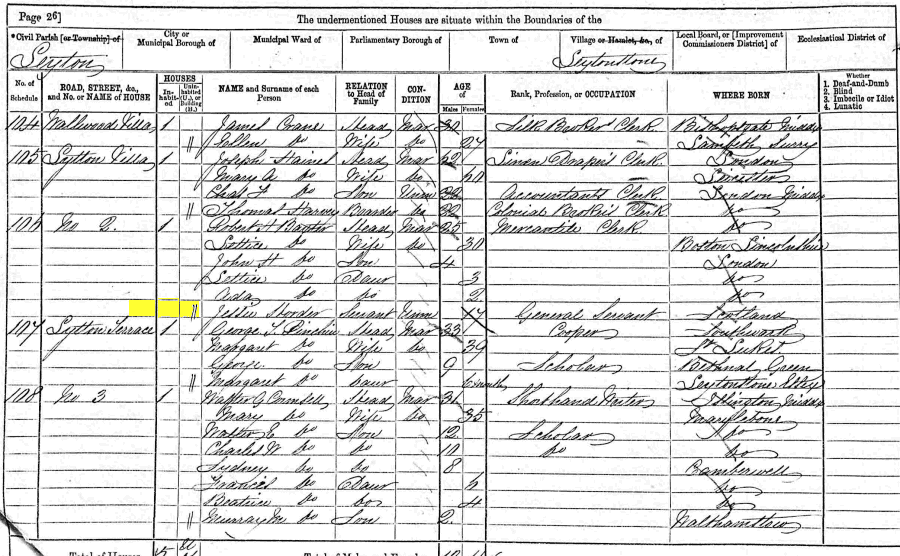 Page 26]
The undermentioned Houses are situate within the Boundaries of the
*Civil Parish [or Township] of
City or Municipal Borough of
Municipal Ward of
Parliamentary Borough of
Town of
Village or Hamlet, &c., of
Local Board, or [Improvement Commissioners District] of
Ecclesiastical District of
Leyton
Leytonstone
No. of Schedule
ROAD, STREET, &c., and No. or NAME of HOUSE
HOUSES
In-habit-ed
Unin-habited (U.), or Building (B.)
NAME and Surname of each Person
RELATION to Head of Family
CON-DITION
AGE of
Males
Females
Rank, Profession, or OCCUPATION
WHERE BORN
Whether
1. Deaf-and-Dumb
2. Blind
3. Imbecile or Idiot
4. Lunatic
104 Wallwood Villa 1 James Crane Head Mar 30 Silk Broker's Clerk Bishopsgate Middx
Ellen do Wife do 27 Lambeth Surry
105 Lytton Villa 1 Joseph Haines Head Mar Linen Draper's Clerk London
Mary A do Wife do Leicester
Chas do Son Unm Accountants Clerk London Middx
Thomas Harvey Boarder do Colonial Broker's Clerk do
106 No 2. 1 Robert H Baxter Head Mar 35 Mercantile Clerk do
Lottice do Wife do 30 Boston Lincolnshire
John H do Son 4 London
Lottice do Daur 3 do
Ada do do 2 do
Jessie Servant Unm 17 General Servant Scotland
107 Lytton Terrace 1 George Pinchin Head Mar 33 Cooper Southwark
Margaret do Wife do 39 St Lukes
George do Son 9 Scholar Bethnal Green
Margaret do Daur 6 months Leytonstone Essex
108 No 3 1 Walter G Head Mar 31 Shorthand Writer Islington Middx
Mary do Wife do 35 Marylebone
Walter E do Son 12 Scholar do
Charles W do do 10 do do
Sydney do do 8 Camberwell
Frances do Daur do
Beatrice do do 4 do
Murray M do Son 2 Walthamstow
Total of Houses